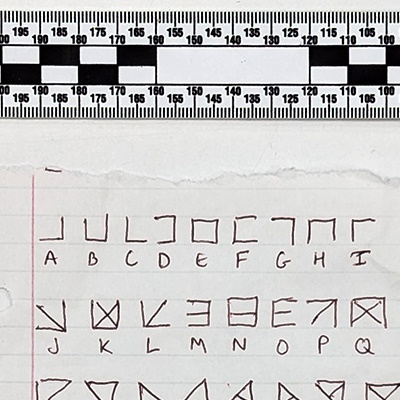 195 190 185 180 175 170 165 160 155 150 145 140 135 130 125 120 115 110 105 100
195 190 185 180 175 170 165 160 155 150 145 140 135 130 125 120 115 110 105 100
A B C D E F G H I
J K L M N O P Q